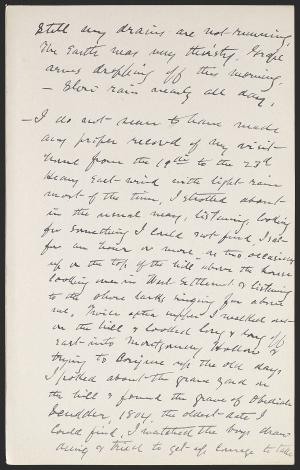 Still my drains are not running,
The earth was very thirsty. Grape
arms dropping off this morning
– Slow rain nearly all day.
– I do not seem to have made
any proper record of my visit
home from the 19th to the 23d
Heavy East wind with light rain
most of the time, I strolled about
in the usual way, listening, looking
for something I could not find, I sat
for an hour or more, on two occasions
up on the top of the hill above the house
looking over in West Settlement & listening
to the shore larks singing far above
me. Twice after supper I walked out
on the hill & looked long & long off
east into Montgomery Hollow &
trying to conjure up the old days
I poked about the grave yard on
the hill & found the grave of Obediah
Scudder, 1804, the oldest date I
could find, I watched the boys draw
& tried to get up courage to take